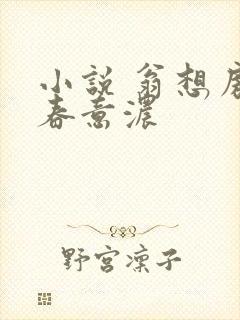 小說 翁想
春意濃
野宮凜子